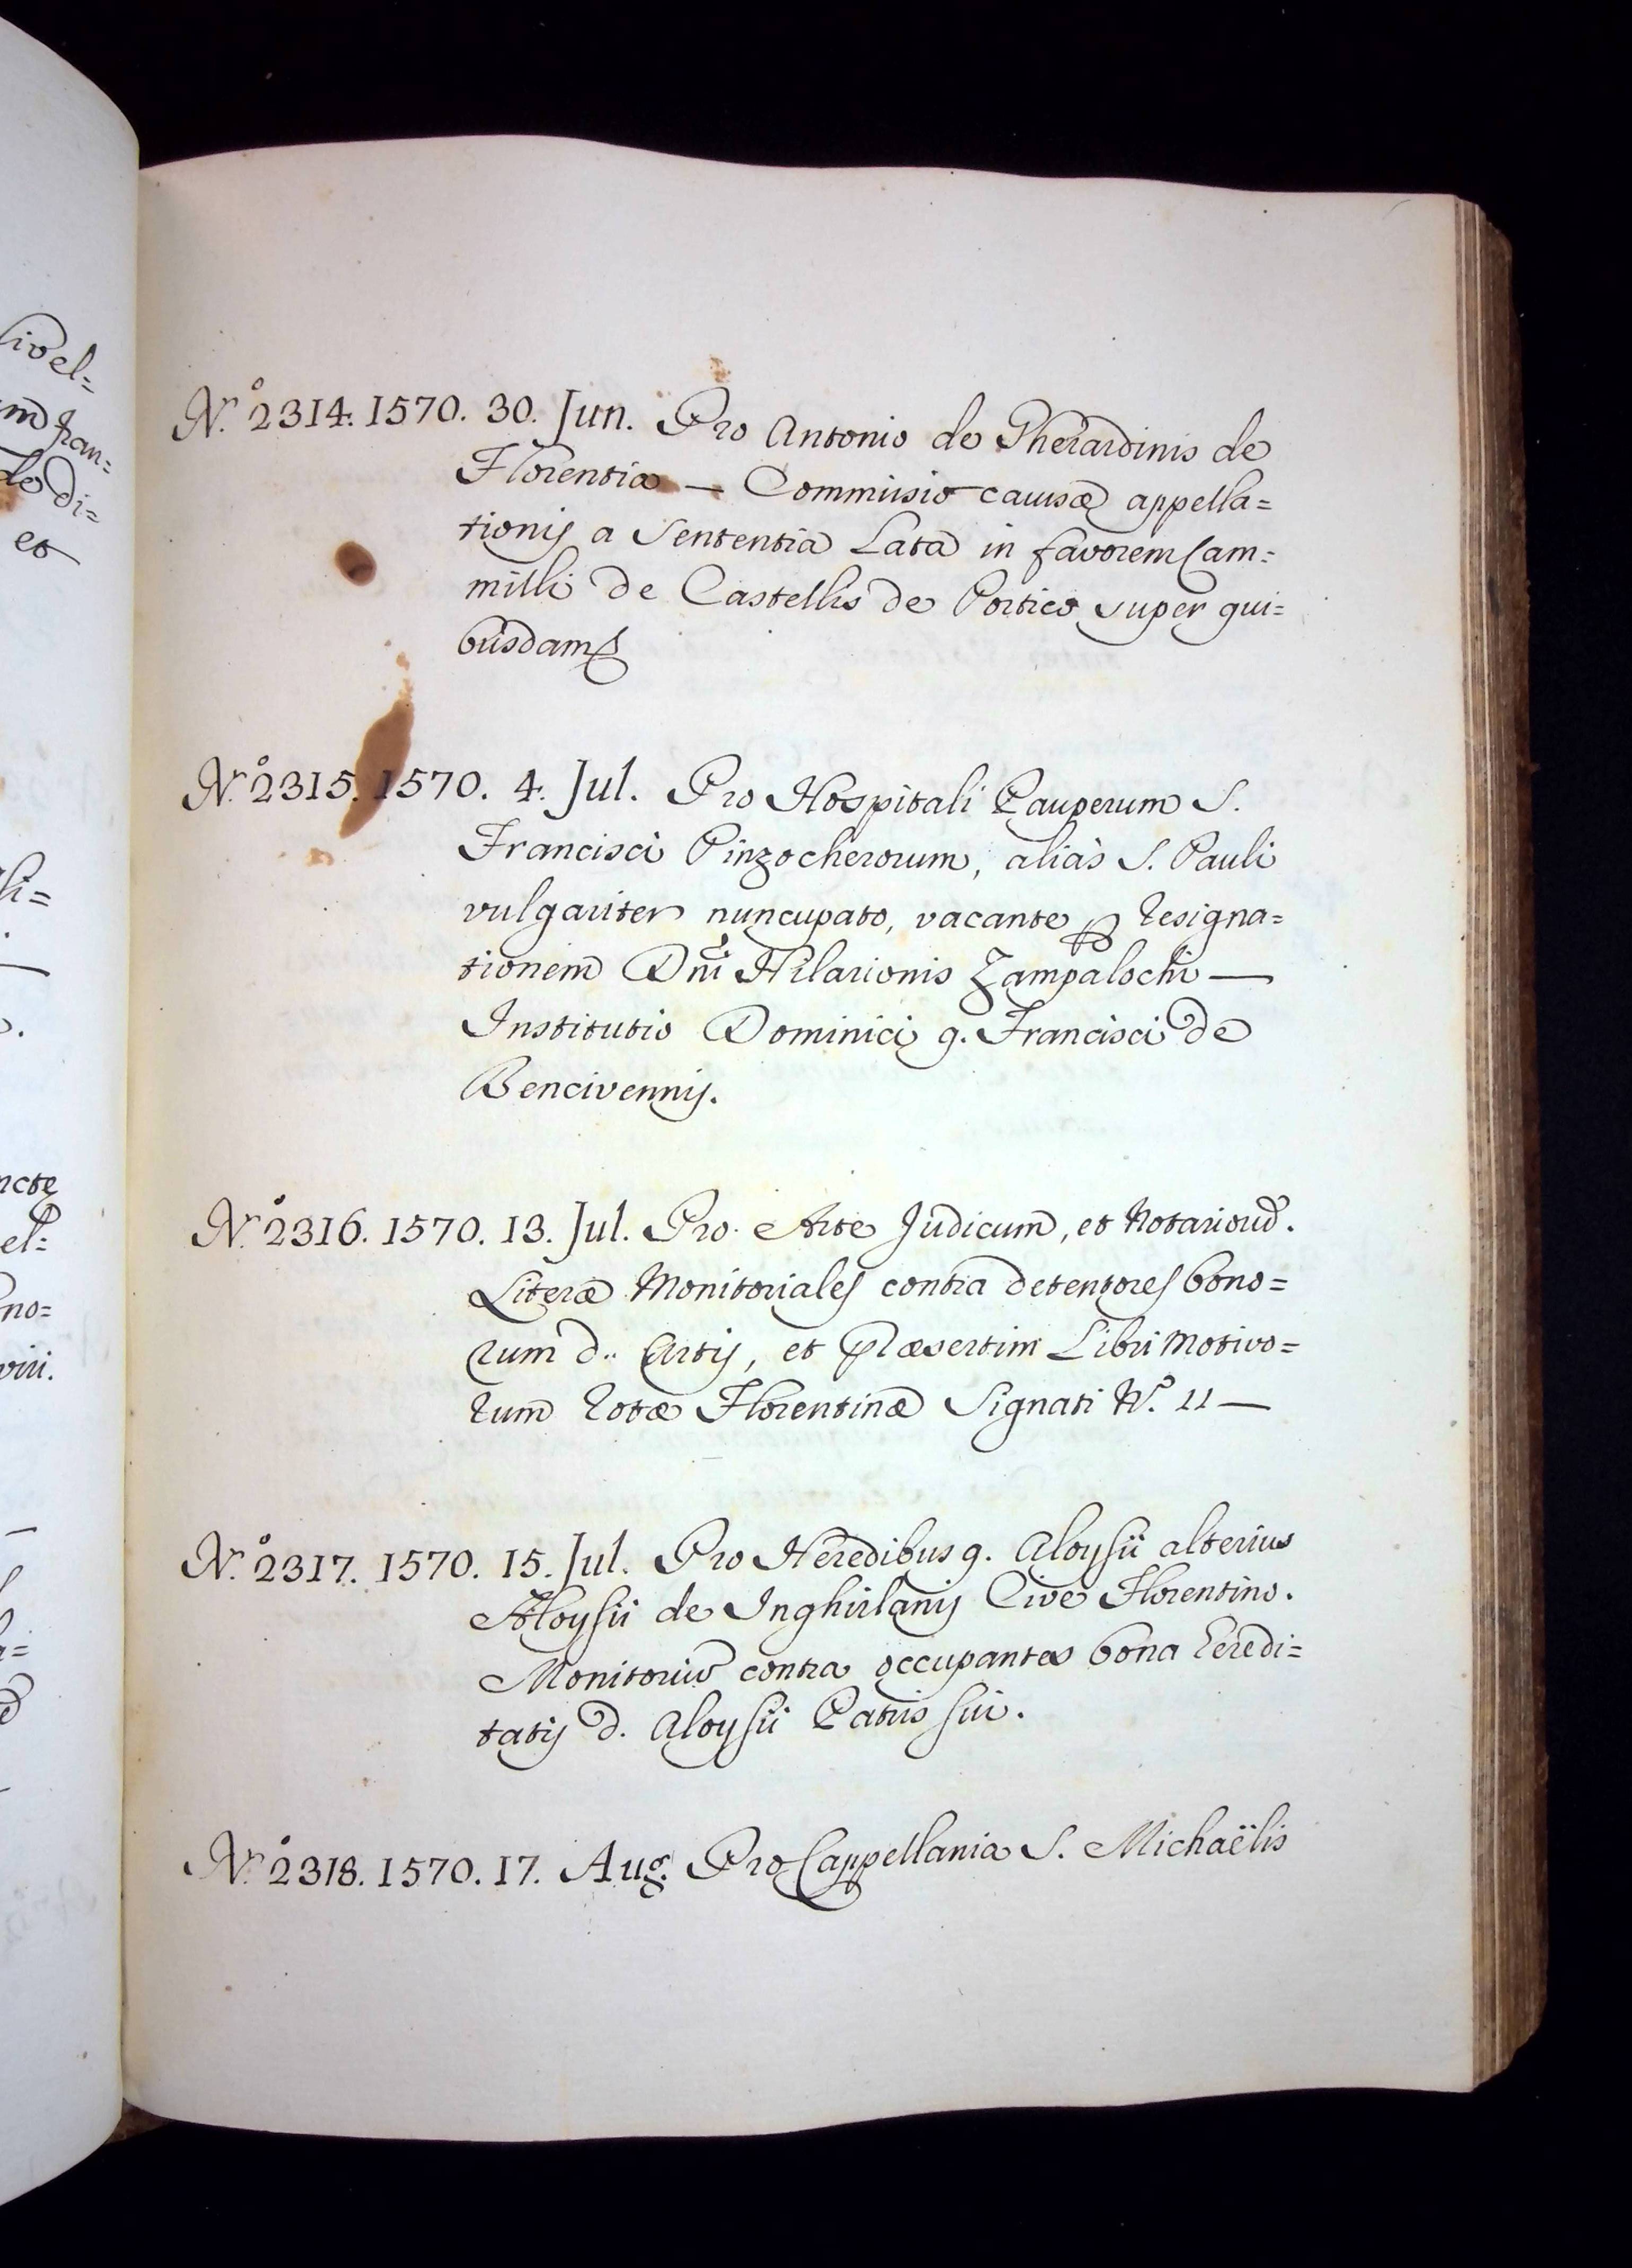 N.º 2314. 1570. 30. Jun. Pro Antonio de Gherardinis de
Florentia — Commissio causæ appella=
tionis a Sententia Lata in favorem Cam=
milli de Castellis de Portico super qui=
busdam
N.º 2315. 1570. 4. Jul. Pro Hospitali Pauperum S.
Francisci Pinzocherorum, alias S. Pauli
vulgariter nuncupato, vacante ꝑ resigna=
tionem Dñi Hilarionis Zampalochi —
Institutio Dominici q. Francisci de
Bencivennis.
N.º 2316. 1570. 13. Jul. Pro Arte Judicum, et Notarioru̅.
Literæ Monitoriales contra detentores bono=
rum d. Artis, et præsertim Libri Motivo=
rum rotæ Florentinæ Signati N.º 11 —
N.º 2317. 1570. 15. Jul. Pro Heredibus q. Aloysii alterius
Aloysii de Inghirlanis Cive Florentino.
Monitoriu̅ contra occupantes bona heredi=
tatis d. Aloysii Patris sui.
N.º 2318. 1570. 17. Aug. Pro Cappellania S. Michaëlis
ivel=
m fran=
de di=
et
li=
ncte
el=
no=
viii.